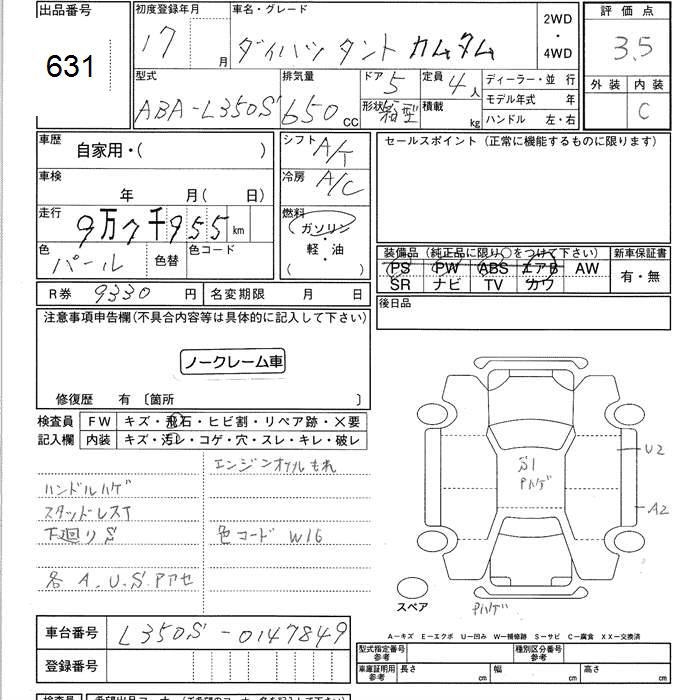 出品番号 631
初度登録年月 17 月
車名・グレード ダイハツ タント カスタム
2WD ・ 4WD
評価点 3.5
外装 内装 C
型式 ABA-L350S
排気量 650 CC
ドア 5 定員 4人
形状 箱型 積載 kg
ディーラー・並行
モデル年式 年
ハンドル 左・右
車歴 自家用・( )
車検 年 月( 日)
走行 9万7千955 km
色 パール 色替 色コード
シフト A/T
冷房 A/C
燃料 ガソリン・軽・油 ( )
セールスポイント(正常に機能するものに限ります)
装備品(純正品に限り○をつけて下さい) 新車保証書
PS PW ABS エアB AW 有・無
SR ナビ TV カワ
後日品
R券 9330 円 名変期限 月 日
注意事項申告欄(不具合内容等は具体的に記入して下さい)
ノークレーム車
修復歴 有 〔箇所 〕
検査員記入欄
FW キズ・飛石・ヒビ割・リペア跡・×要
内装 キズ・汚レ・コゲ・穴・スレ・キレ・破レ
エンジンオイルもれ
ハンドルハゲ
スタッドレスT
下廻りS
色コード W16
各A.U.S.Pアセ
S1
Pハゲ
U2
A2
スペア
Pハゲ
車台番号 L350S-0147849
登録番号
A－キズ E－エクボ U－凹み W－補修跡 S－サビ C－腐食 XX－交換済
型式指定番号 参考 種別区分番号 参考
車庫証明用 参考 長さ cm 幅 cm 高さ cm